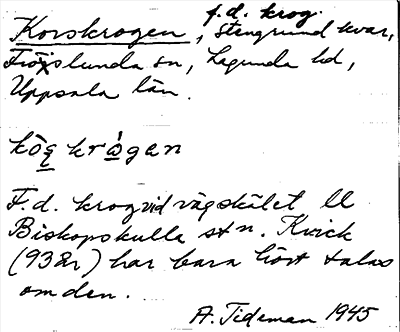 f.d. krog.
Korskrogen, Stengrund kvar,
Fröslunda sn, Lagunda hd,
Uppsala län.
kȯ̀s̠kró̠gen
F.d. krog vid vägskälet ll
Biskopskulla stn. Kvick
(93 år) har bara hört talas
om den.
A. Tideman 1945